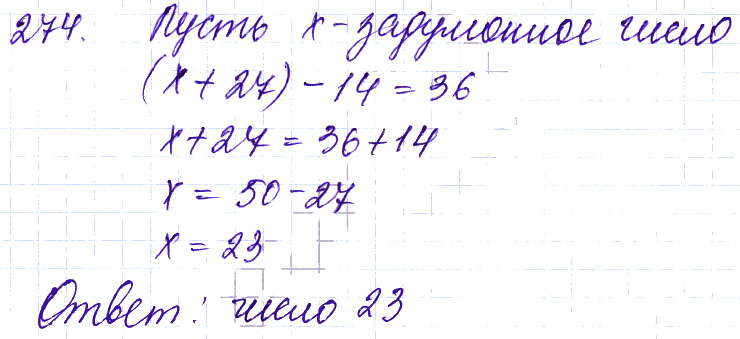 274. Пусть x - задуманное число
(x + 27) - 14 = 36
x + 27 = 36 + 14
x = 50 - 27
x = 23
Ответ: число 23